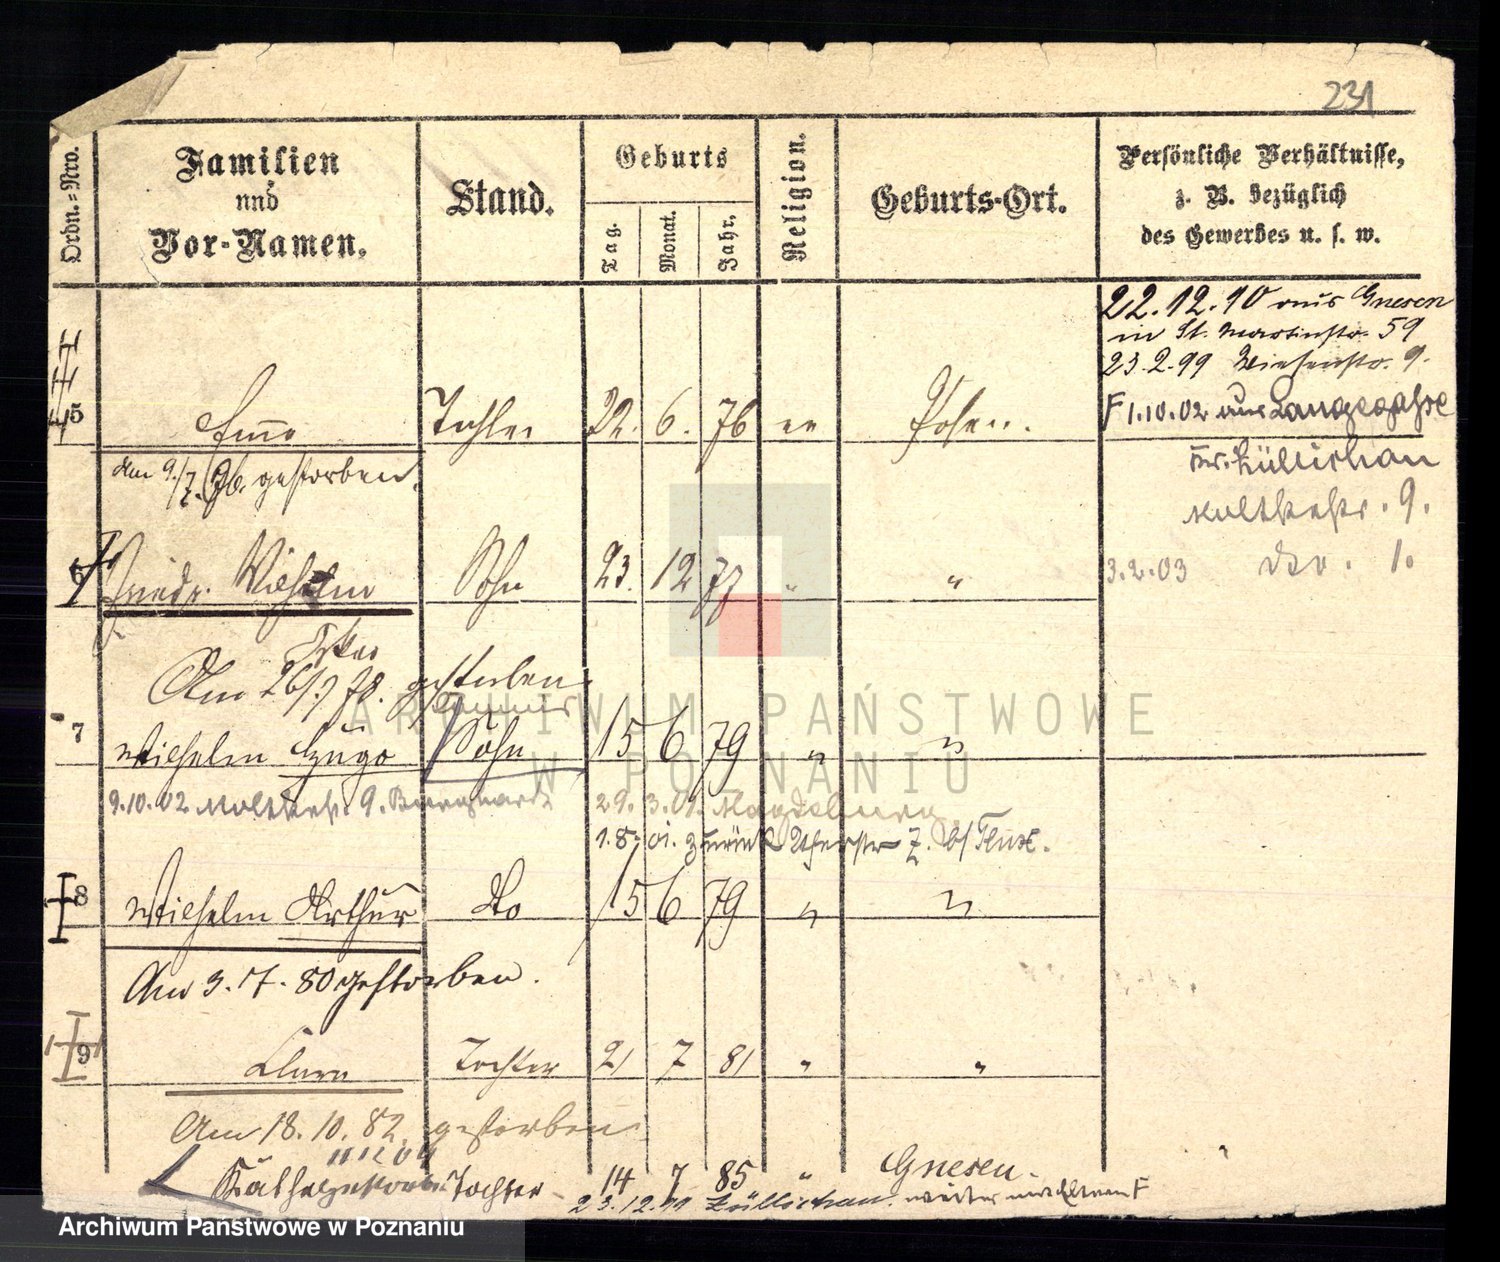 231
Ordn.=Nro.
Familien
und
Vor-Namen.
Stand.
Geburts
Tag.
Monat.
Jahr.
Religion.
Geburts-Ort.
Persönliche Verhältnisse,
z. B. bezüglich
des Gewerbes u. s. w.
22.12.90 aus Gnesen
in St. Martinstr. 59
23.2.99 Wiesenstr. 9.
5 Emma Tochter 22. 6. 76 ev Posen.
F 1.10.02 aus Langegasse
Am 9./7. 76. gestorben.
Züllichau
Moltkestr. 9.
6 Friedr. Wilhelm Sohn 23. 12 77 " "
3.2.03 do. 1.
Oskar
Am 26/9 78. gestorben
7 Wilhelm Hugo Sohn 15 6 79 " "
9.10.02 Moltkestr. 9.
29.3.01. Magdeburg.
1.8.01. zurück 7. b/
8 Wilhelm Arthur do 15 6 79 " "
Am 3.7.80 gestorben.
9 Clara Tochter 21 7 81 " "
Am 18.10.82. gestorben
Käthe gestorb. Tochter 14 7 85 " Gnesen.
23.12.99 Züllichau.
ARCHIWUM PAŃSTWOWE
W POZNANIU
Archiwum Państwowe w Poznaniu